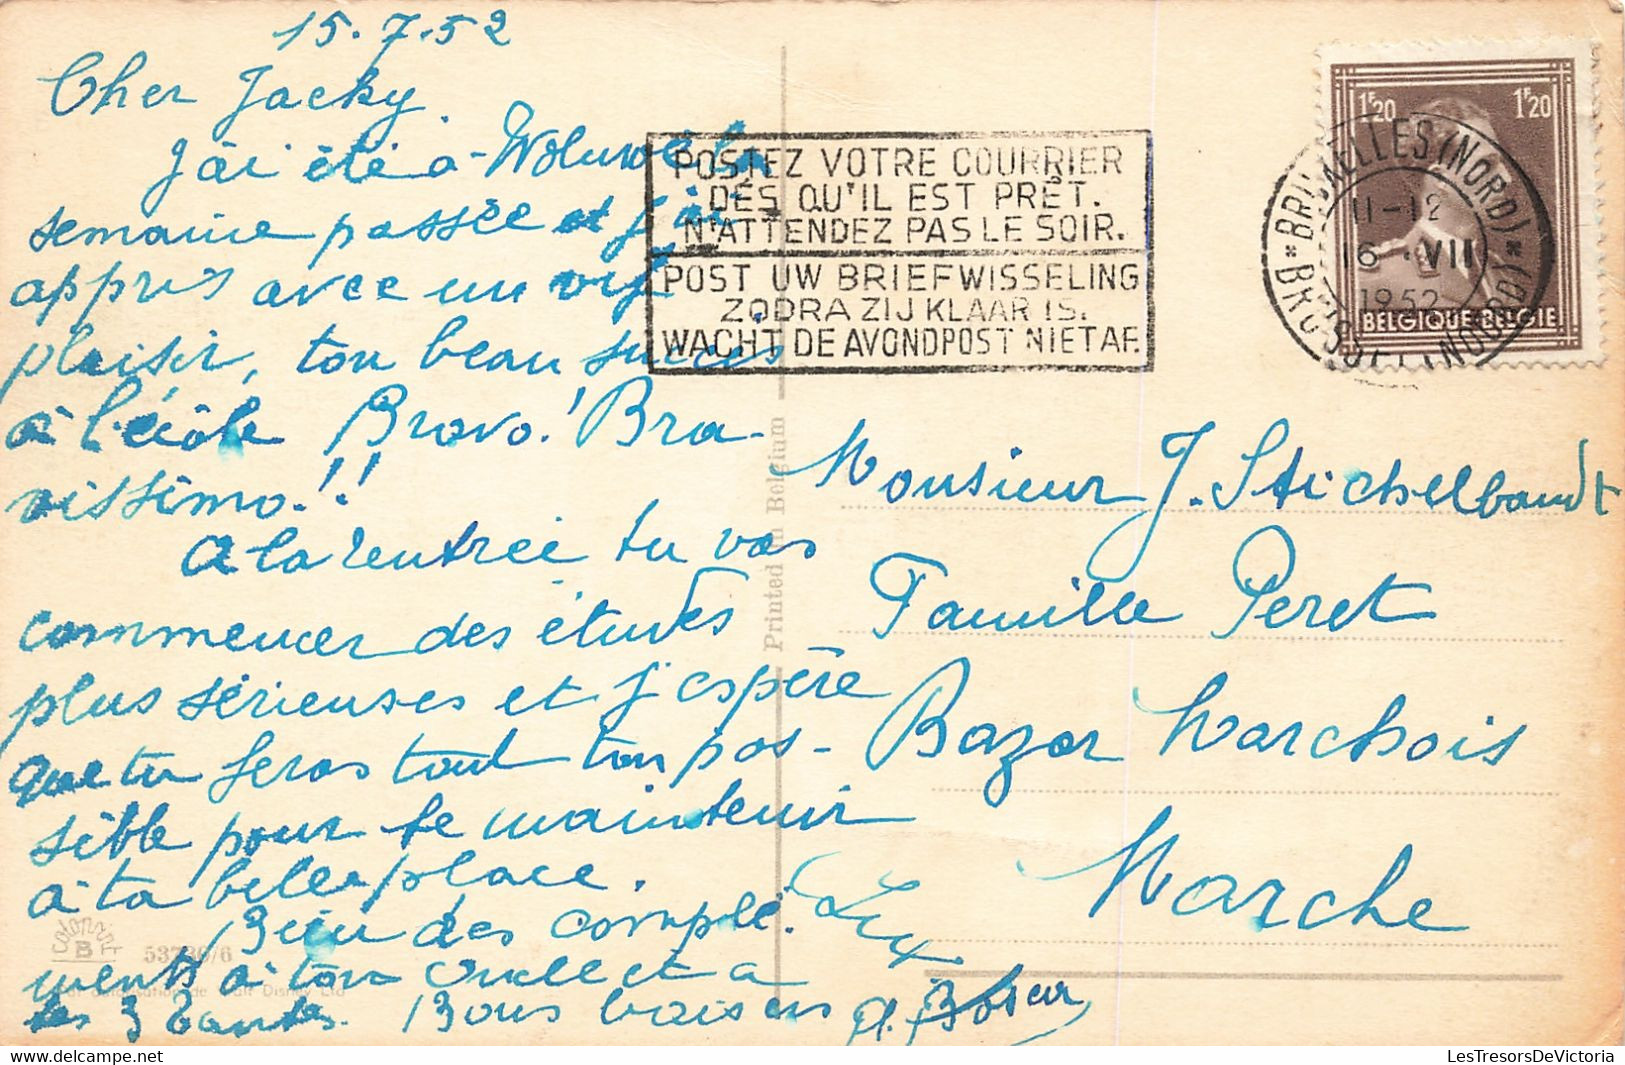 15.7.52
Cher Jacky
J'ai été à Woluwe la
semaine passée et j'ai
appris avec un vif
plaisir, ton beau succès
à l'école Bravo! Bra-
vissimo!!
A la rentrée tu vas
commencer des études
plus sérieuses et j'espère
que tu feras tout ton pos-
sible pour te maintenir
à ta belle place.
Bien des compli-
ments à ton oncle et à
tes 3 tantes. Bons baisers
POSTEZ VOTRE COURRIER
DÈS QU'IL EST PRÊT.
N'ATTENDEZ PAS LE SOIR.
POST UW BRIEFWISSELING
ZODRA ZIJ KLAAR IS.
WACHT DE AVONDPOST NIET AF.
1F20 1F20
BELGIQUE-BELGIE
BRUXELLES (NORD)
11-12
16 VII
1952
BRUSSEL (NOORD)
Printed in Belgium
Monsieur J. Stichelbaudt
Famille Peret
Bazar Marchois
Marche
colorprint
B
53730/6
autorisation de Walt Disney Ltd
LesTresorsDeVictoria.com
https://www.delcampe.net